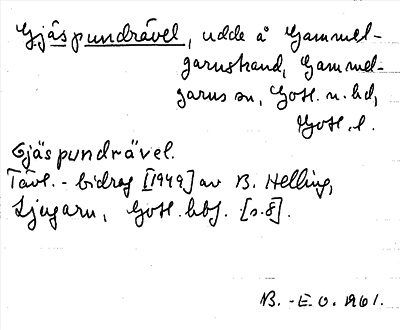 Gjäspundrävel, udde å Gammel-
garnstrand, Gammel-
garns sn, Gotl. n. hd,
Gotl. l.
Gjäspundrävel.
Tävl.-bidrag [1949] av B. Helling,
Ljugarn, Gotl. [s. 8].
B.-E. O. 1961.